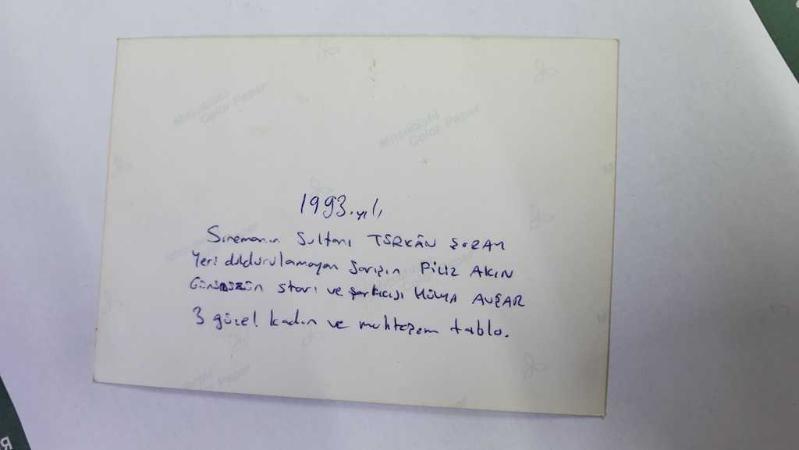 1993.yılı
Sinemanın Sultanı TÜRKÂN ŞORAY
Yeri doldurulamayan Sarışın FİLİZ AKIN
Günümüzün starı ve şarkıcısı HÜLYA AVŞAR
3 güzel kadın ve muhteşem tablo.
Mitsubishi
Color Paper
Mitsubishi
Color Paper